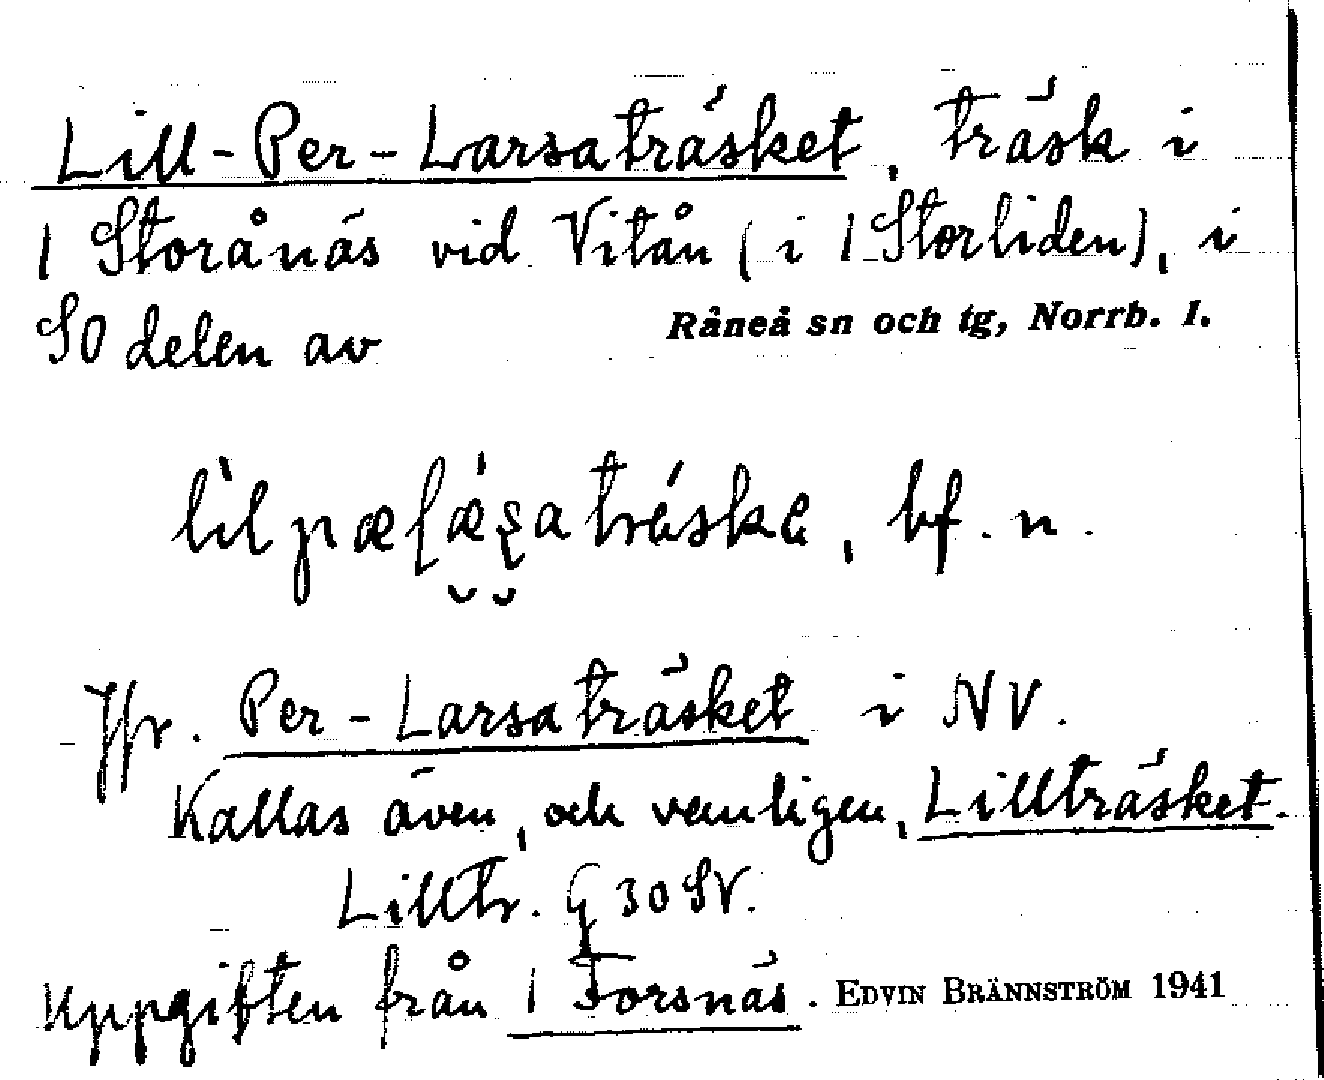 Lill-Per-Larsaträsket, träsk i
1 Storånäs vid Vitån (i 1 Storliden), i
SO delen av Råneå sn och tg, Norrb. l.
bf. n.
Jfr. Per-Larsaträsket i NV.
Kallas även, och vanligen, Lillträsket.
Lilltr. G 30 SV.
Uppgiften från 1 Forsnäs. EDVIN BRÄNNSTRÖM 1941